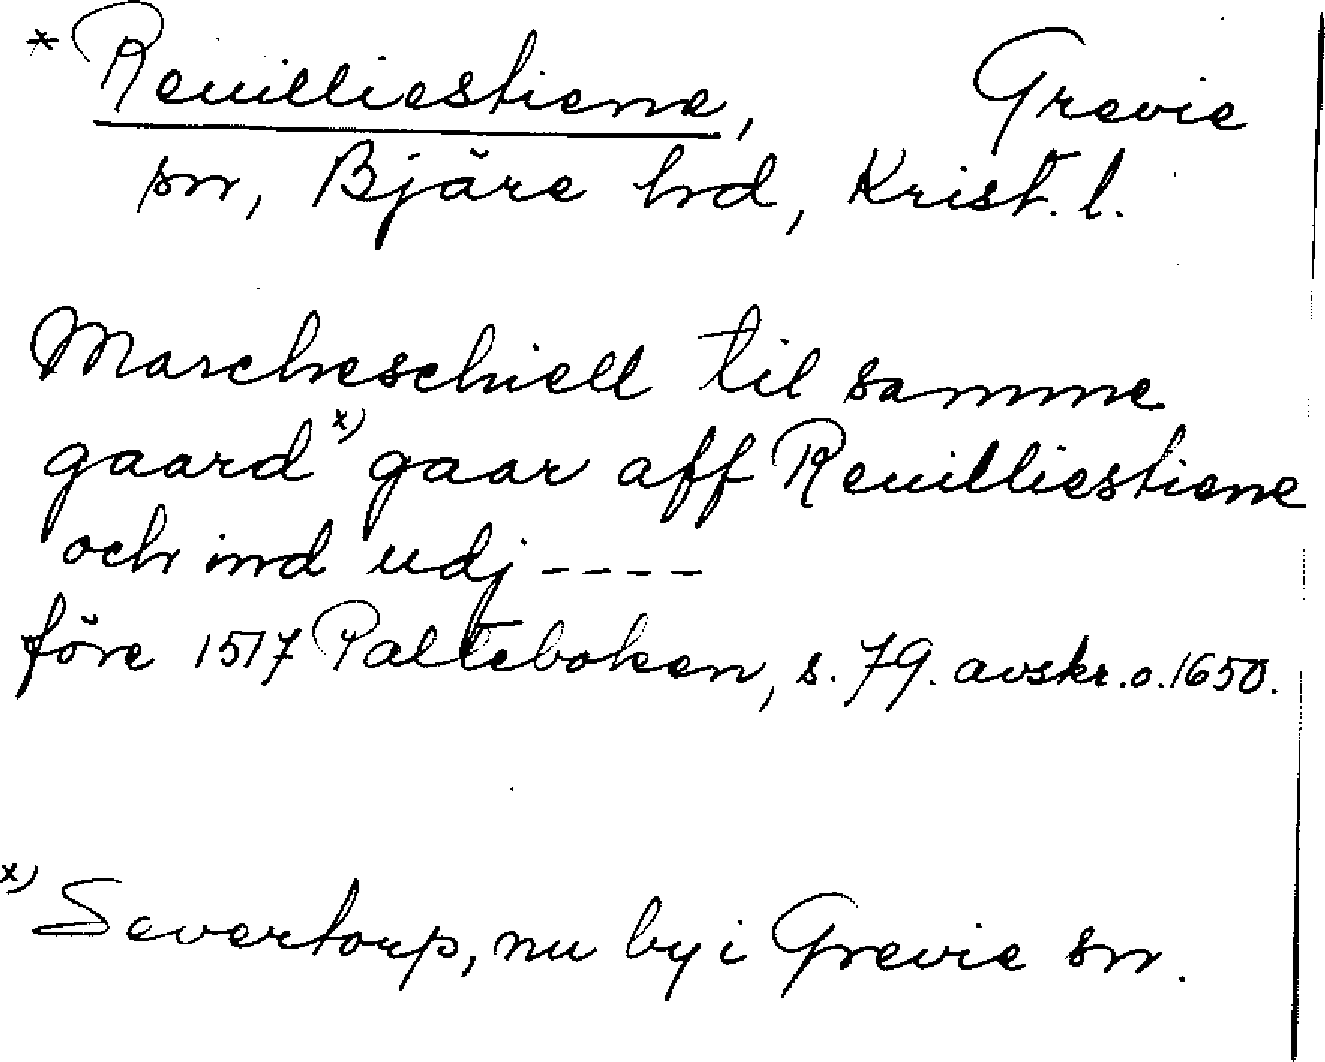 * Reuilliestiene, Grevie
sn, Bjäre hd, Krist. l.
Marcheschiell til samme
gaard x) gaar aff Reuilliestiene
och ind udj ----
före 1517 Palteboken, s. 79. avskr. o. 1650.
x) Severtorp, nu by i Grevie sn.